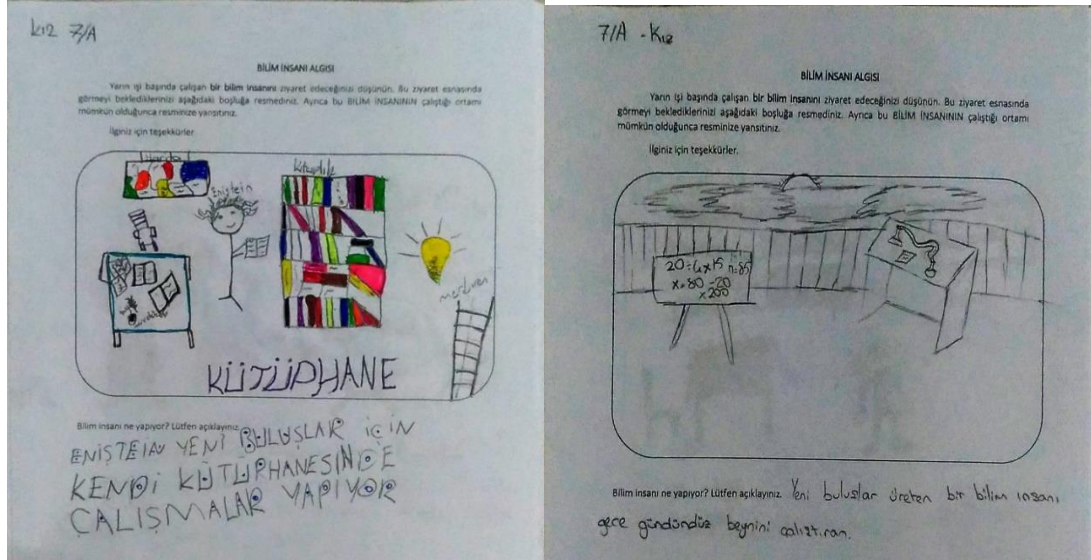 kız 7/A
BİLİM İNSANI ALGISI
Yarın işi başında çalışan bir bilim insanını ziyaret edeceğinizi düşünün. Bu ziyaret esnasında
görmeyi beklediklerinizi aşağıdaki boşluğa resmediniz. Ayrıca bu BİLİM İNSANININ çalıştığı ortamı
mümkün olduğunca resminize yansıtınız.
İlginiz için teşekkürler.
Enistein
Kitaplık
merdiven
KÜTÜPHANE
Bilim insanı ne yapıyor? Lütfen açıklayınız.
ENİSTEİN YENİ BULUŞLAR İÇİN
KENDİ KÜTÜPHANESİNDE
ÇALIŞMALAR YAPIYOR
7/A - Kız
BİLİM İNSANI ALGISI
Yarın işi başında çalışan bir bilim insanını ziyaret edeceğinizi düşünün. Bu ziyaret esnasında
görmeyi beklediklerinizi aşağıdaki boşluğa resmediniz. Ayrıca bu BİLİM İNSANININ çalıştığı ortamı
mümkün olduğunca resminize yansıtınız.
İlginiz için teşekkürler.
20÷4x15 n=85
x=80-20
x200
Bilim insanı ne yapıyor? Lütfen açıklayınız. Yeni buluşlar üreten bir bilim insanı
gece gündündüz beynini çalıştıran.